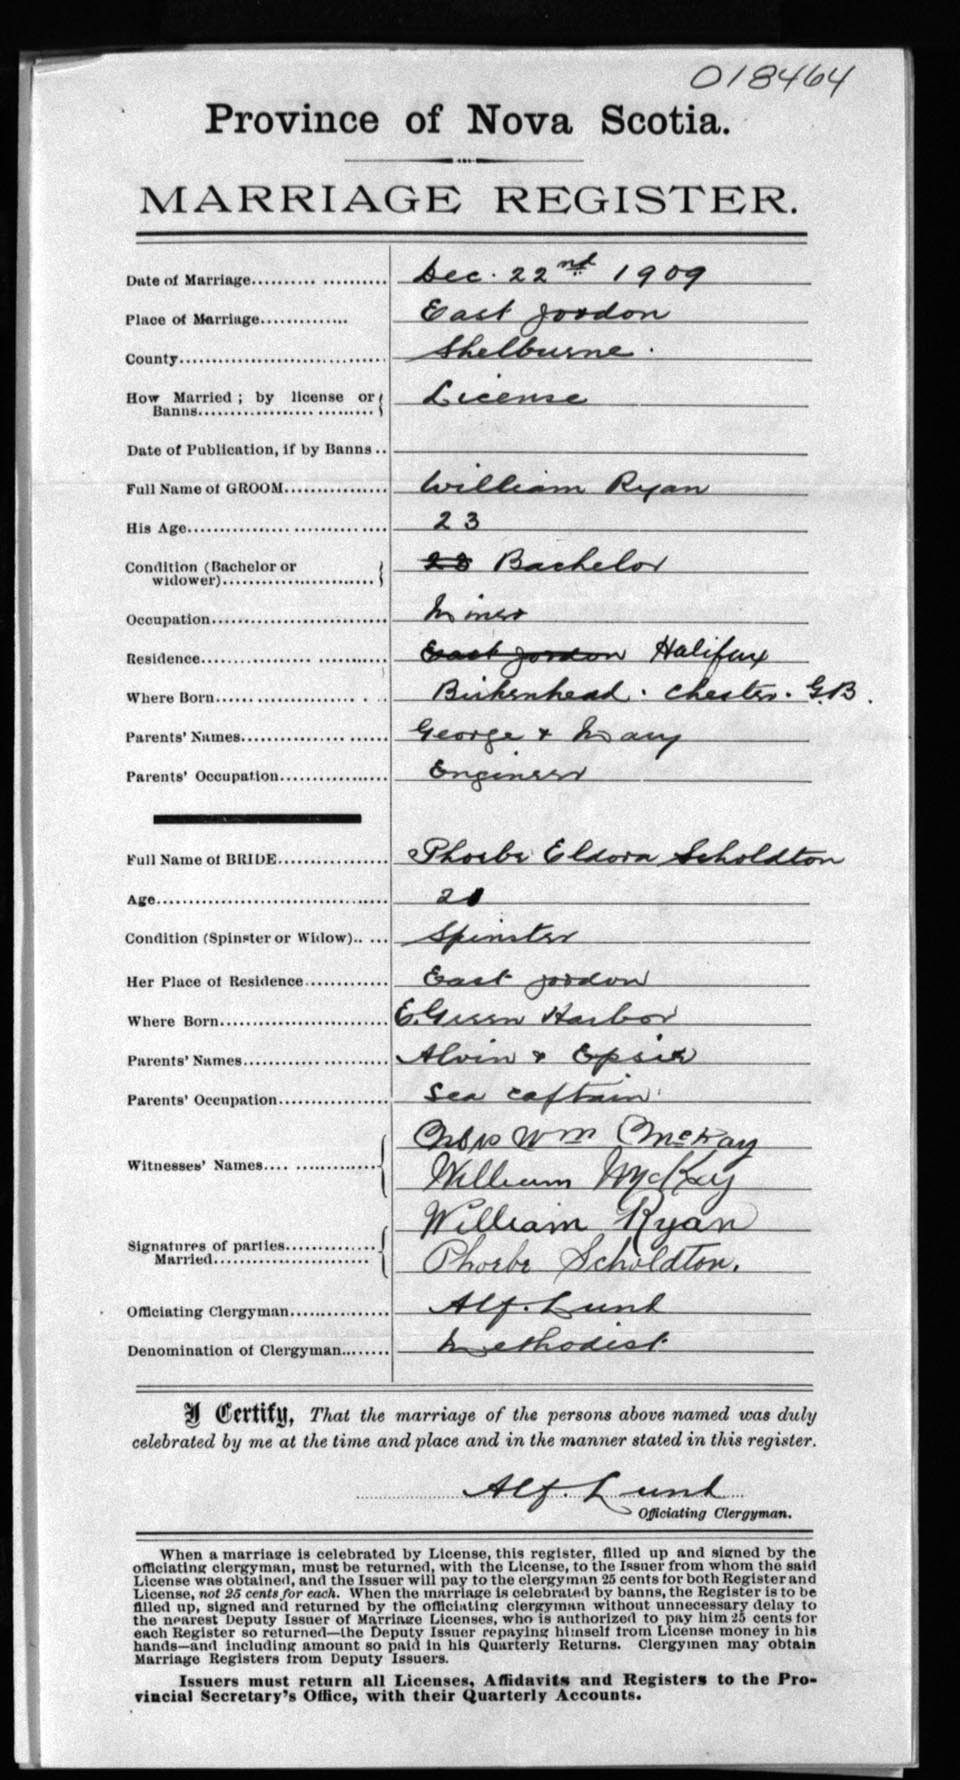 018464
Province of Nova Scotia.
MARRIAGE REGISTER.
Date of Marriage.................... Dec. 22nd 1909
Place of Marriage.............. East Jordon
County.............................. Shelburne.
How Married; by license or
Banns.............................. License
Date of Publication, if by Banns..
Full Name of GROOM................ William Ryan
His Age.............................. 23
Condition (Bachelor or
widower)......................... 23 Bachelor
Occupation........................... Miner
Residence............................ East Jordon Halifax
Where Born........................ Birkenhead. Chester. G.B.
Parents' Names...................... George & Mary
Parents' Occupation................. Engineer
Full Name of BRIDE................. Phoebe Eldora Scholdton
Age.................................... 21
Condition (Spinster or Widow)..... Spinster
Her Place of Residence............. East Jordon
Where Born.......................... E. Green Harbor
Parents' Names...................... Alvin & Epsie
Parents' Occupation................. Sea Captain
Wm McKay
Witnesses' Names.................. William McKay
William Ryan
Signatures of parties...............
Married......................... Phoebe Scholdton.
Officiating Clergyman............... Alf. Lund
Denomination of Clergyman........ Methodist
I Certify, That the marriage of the persons above named was duly
celebrated by me at the time and place and in the manner stated in this register.
Alf. Lund
Officiating Clergyman.
When a marriage is celebrated by License, this register, filled up and signed by the
officiating clergyman, must be returned, with the License, to the Issuer from whom the said
License was obtained, and the Issuer will pay to the clergyman 25 cents for both Register and
License, not 25 cents for each. When the marriage is celebrated by banns, the Register is to be
filled up, signed and returned by the officiating clergyman without unnecessary delay to
the nearest Deputy Issuer of Marriage Licenses, who is authorized to pay him 25 cents for
each Register so returned—the Deputy Issuer repaying himself from License money in his
hands—and including amount so paid in his Quarterly Returns. Clergymen may obtain
Marriage Registers from Deputy Issuers.
Issuers must return all Licenses, Affidavits and Registers to the Pro-
vincial Secretary's Office, with their Quarterly Accounts.